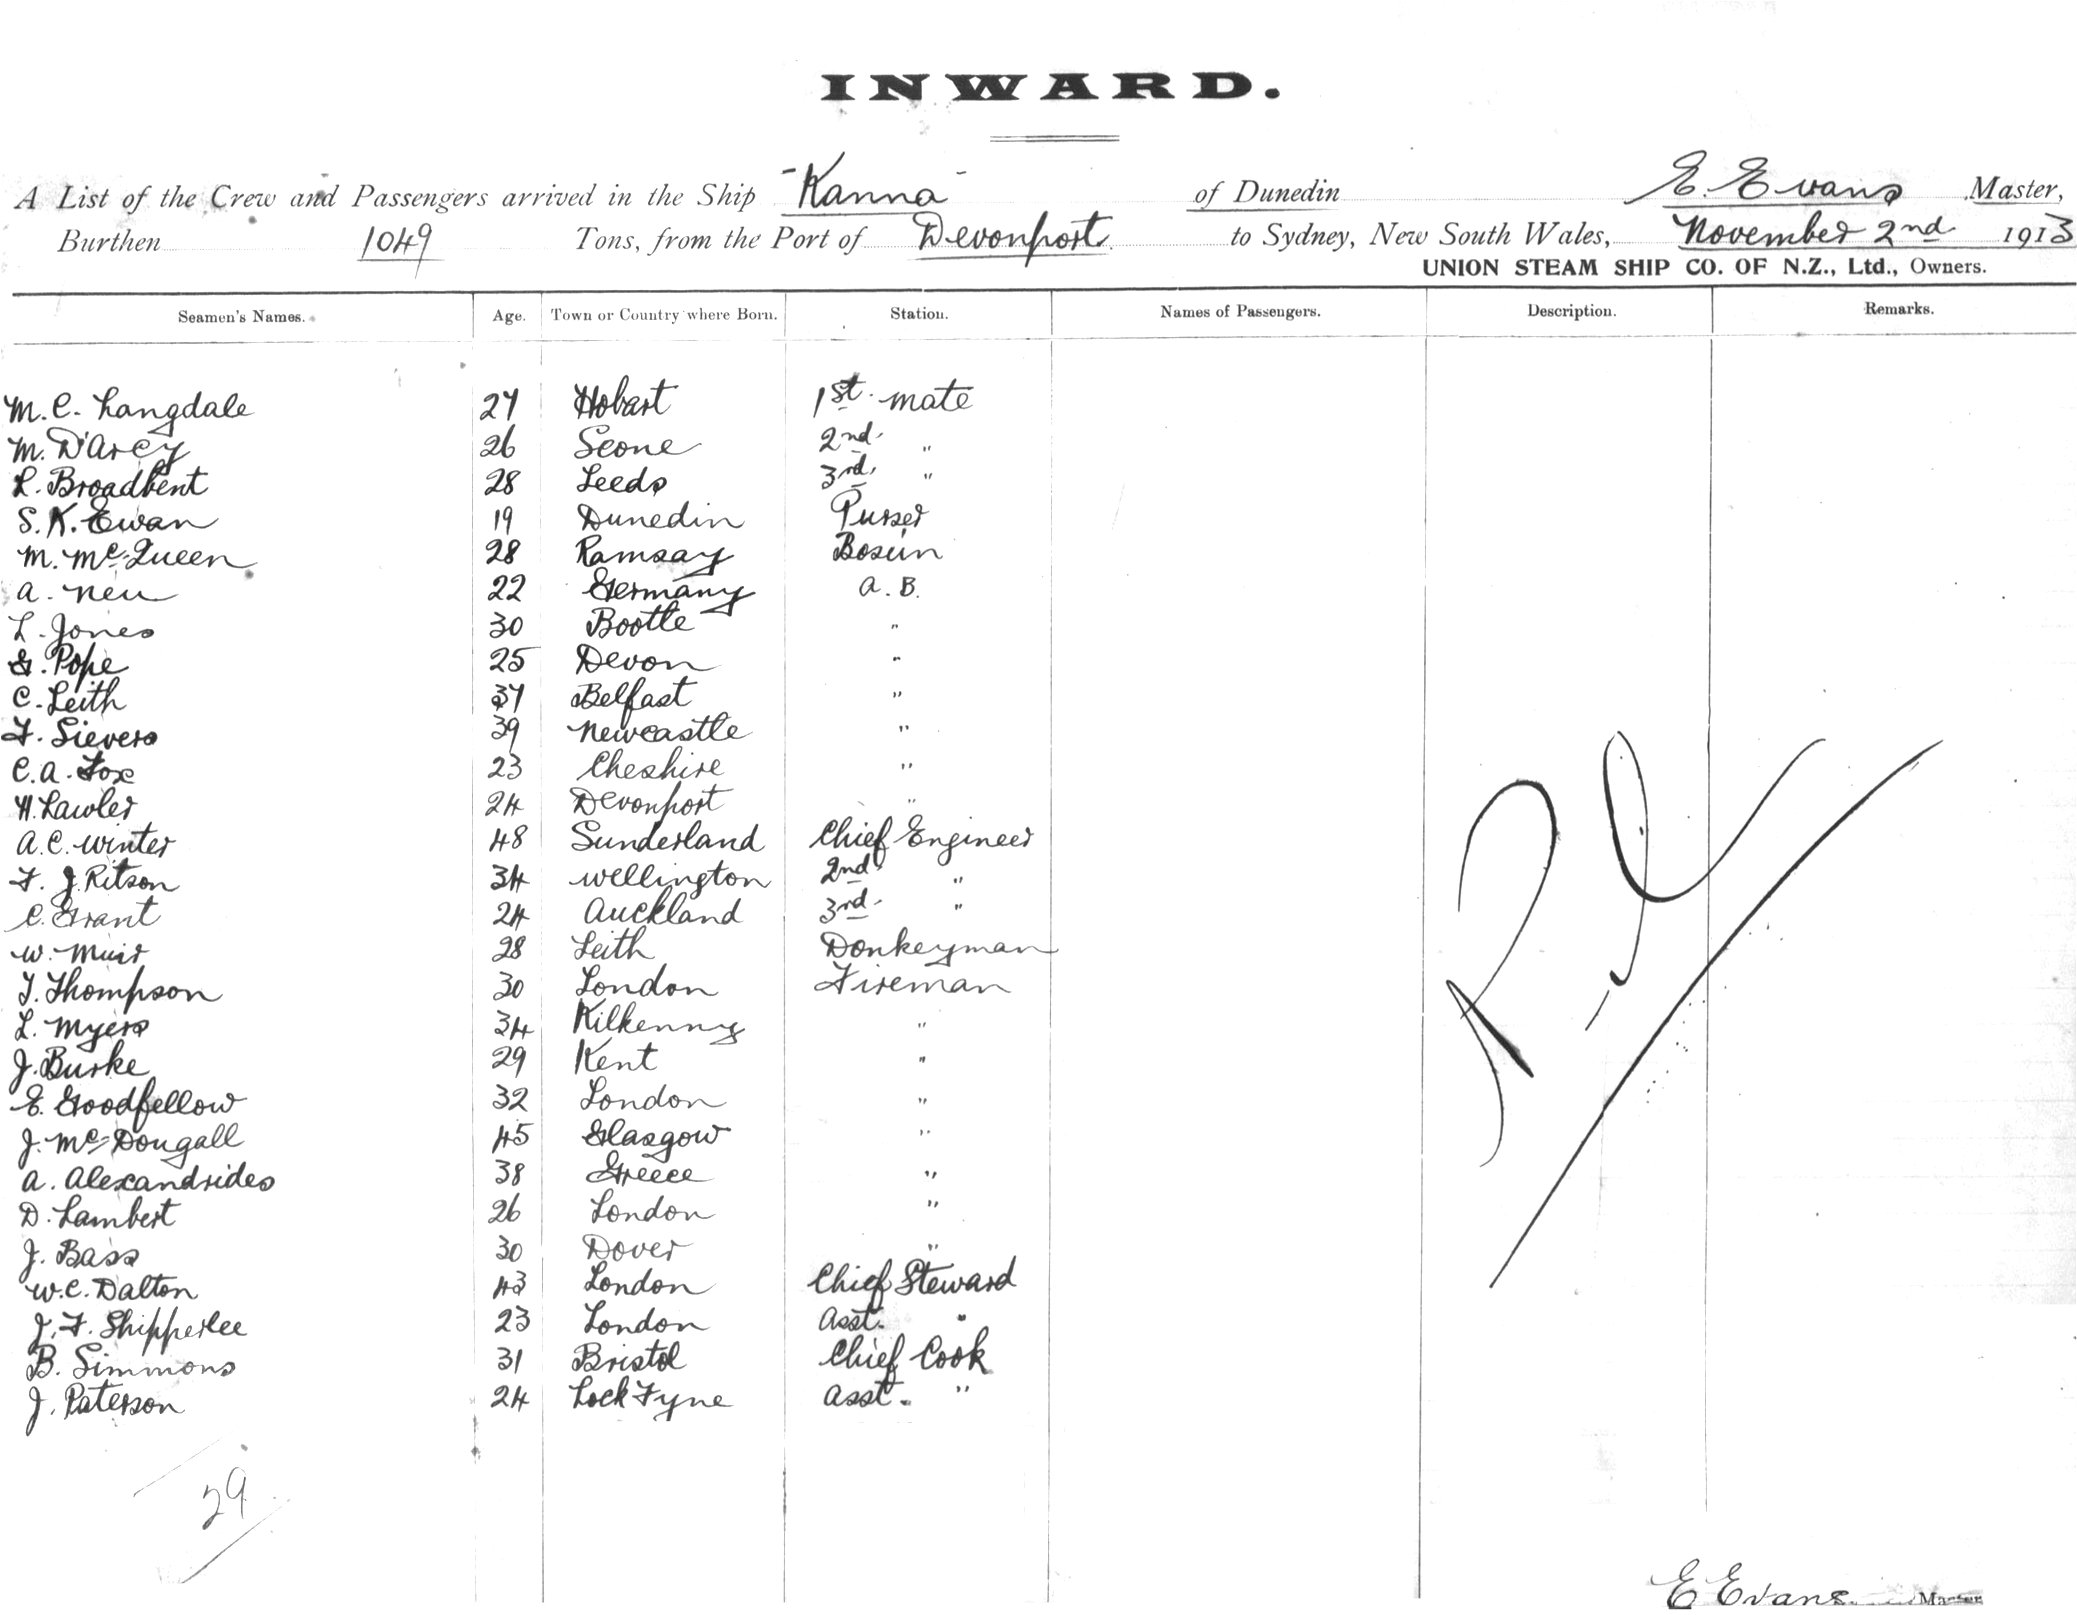 INWARD.
A List of the Crew and Passengers arrived in the Ship "Kanna" of Dunedin E. Evans Master,
Burthen 1049 Tons, from the Port of Devonport to Sydney, New South Wales, November 2nd 1913
UNION STEAM SHIP CO. OF N.Z., Ltd., Owners.
Seamen's Names. Age. Town or Country where Born. Station. Names of Passengers. Description. Remarks.
M. C. Langdale 27 Hobart 1st. Mate
M. D'Arcy 26 Scone 2nd. "
L. Broadbent 28 Leeds 3rd. "
S. K. Ewan 19 Dunedin Purser
M. McQueen 28 Ramsay Bosun
A. Neu 22 Germany A. B.
L. Jones 30 Bootle "
G. Pope 25 Devon "
C. Leith 37 Belfast "
F. Sievers 39 Newcastle "
C. A. Fox 23 Cheshire "
H. Lawler 24 Devonport "
A. C. Winter 48 Sunderland Chief Engineer
F. J. Ritson 34 Wellington 2nd. "
C. Grant 24 Auckland 3rd. "
W. Muir 28 Leith Donkeyman
T. Thompson 30 London Fireman
L. Myers 34 Kilkenny "
J. Burke 29 Kent "
E. Goodfellow 32 London "
J. McDougall 45 Glasgow "
A. Alexandrides 38 Greece "
D. Lambert 26 London "
J. Bass 30 Dover "
W. C. Dalton 43 London Chief Steward
J. F. Shipperlee 23 London Asst. "
B. Simmons 31 Bristol Chief Cook
J. Paterson 24 Lock Fyne Asst. "
29
E Evans Master